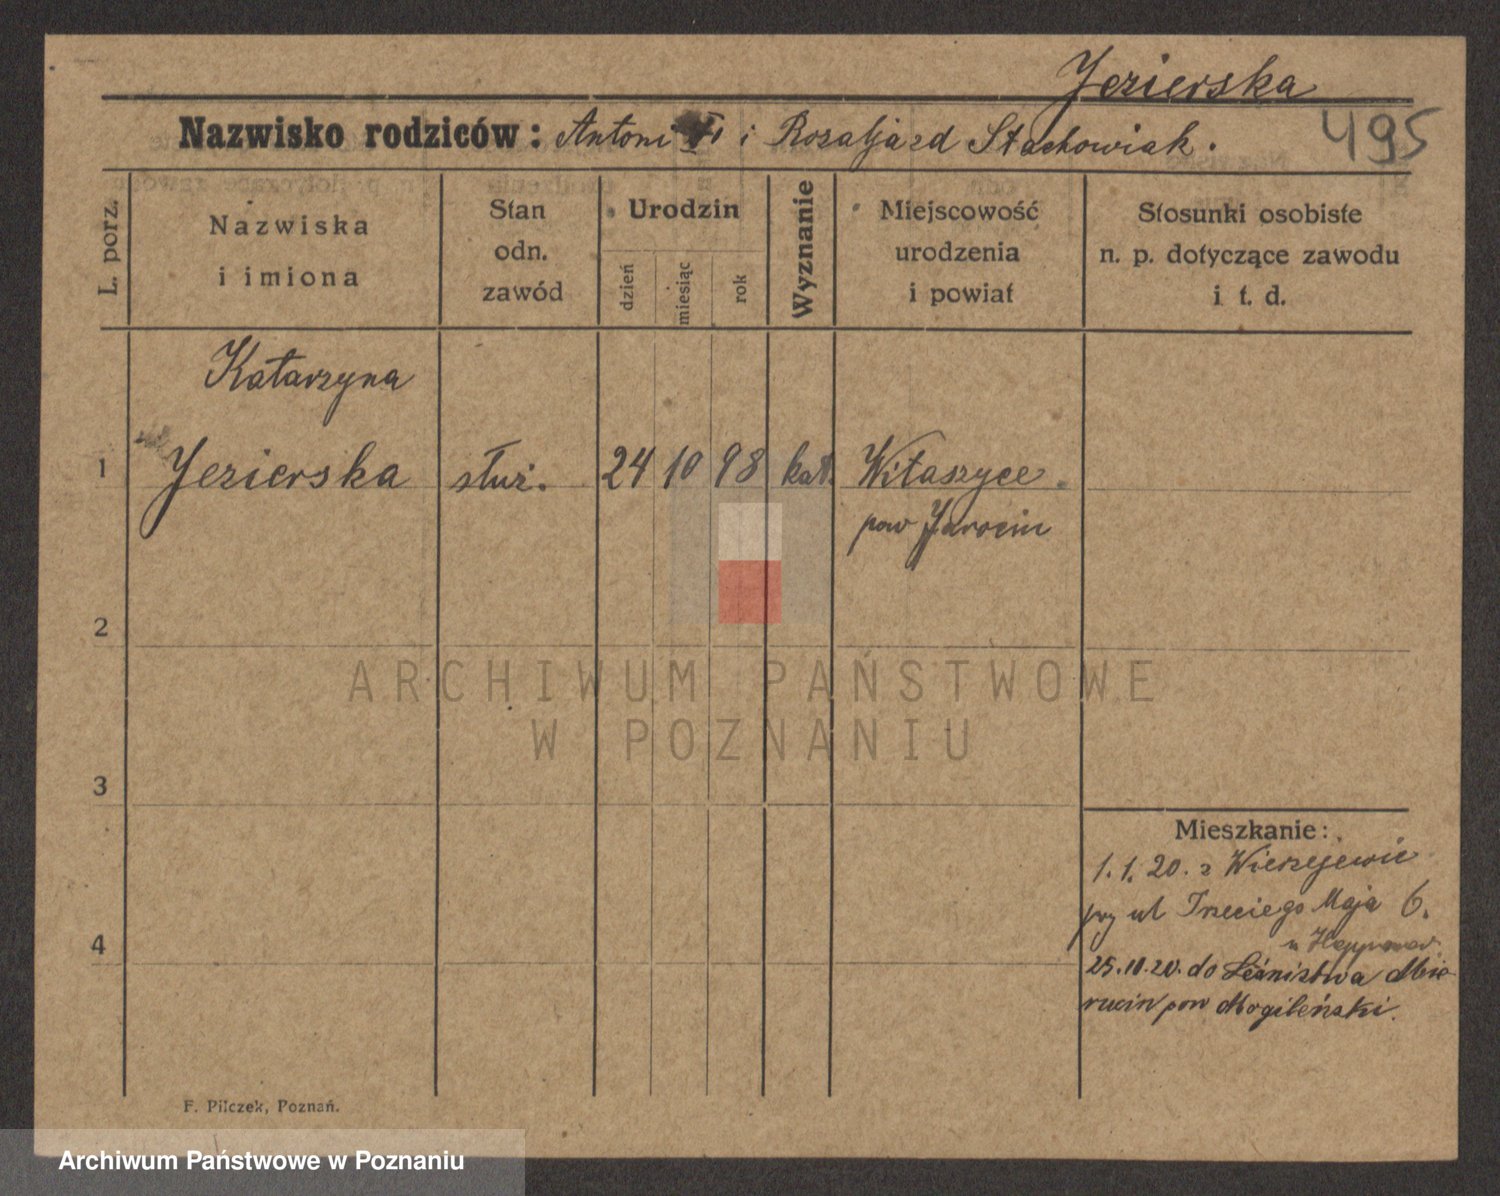 Jezierska
Nazwisko rodziców: Antoni i Rozalja zd Stachowiak.
495
L. porz.
Nazwiska
i imiona
Stan
odn.
zawód
Urodzin
dzień
miesiąc
rok
Wyznanie
Miejscowość
urodzenia
i powiat
Stosunki osobiste
n. p. dotyczące zawodu
i t. d.
Katarzyna
1 Jezierska służ. 24 10 98 kat. Witaszyce
pow Jarocin
2
ARCHIWUM PAŃSTWOWE
W POZNANIU
3
Mieszkanie:
1. 1. 20. z Wierzejewic
przy ul Trzeciego Maja 6.
u
4
25.10.20. do Leśnistwa
pow Mogileński.
F. Pilczek, Poznań.
Archiwum Państwowe w Poznaniu